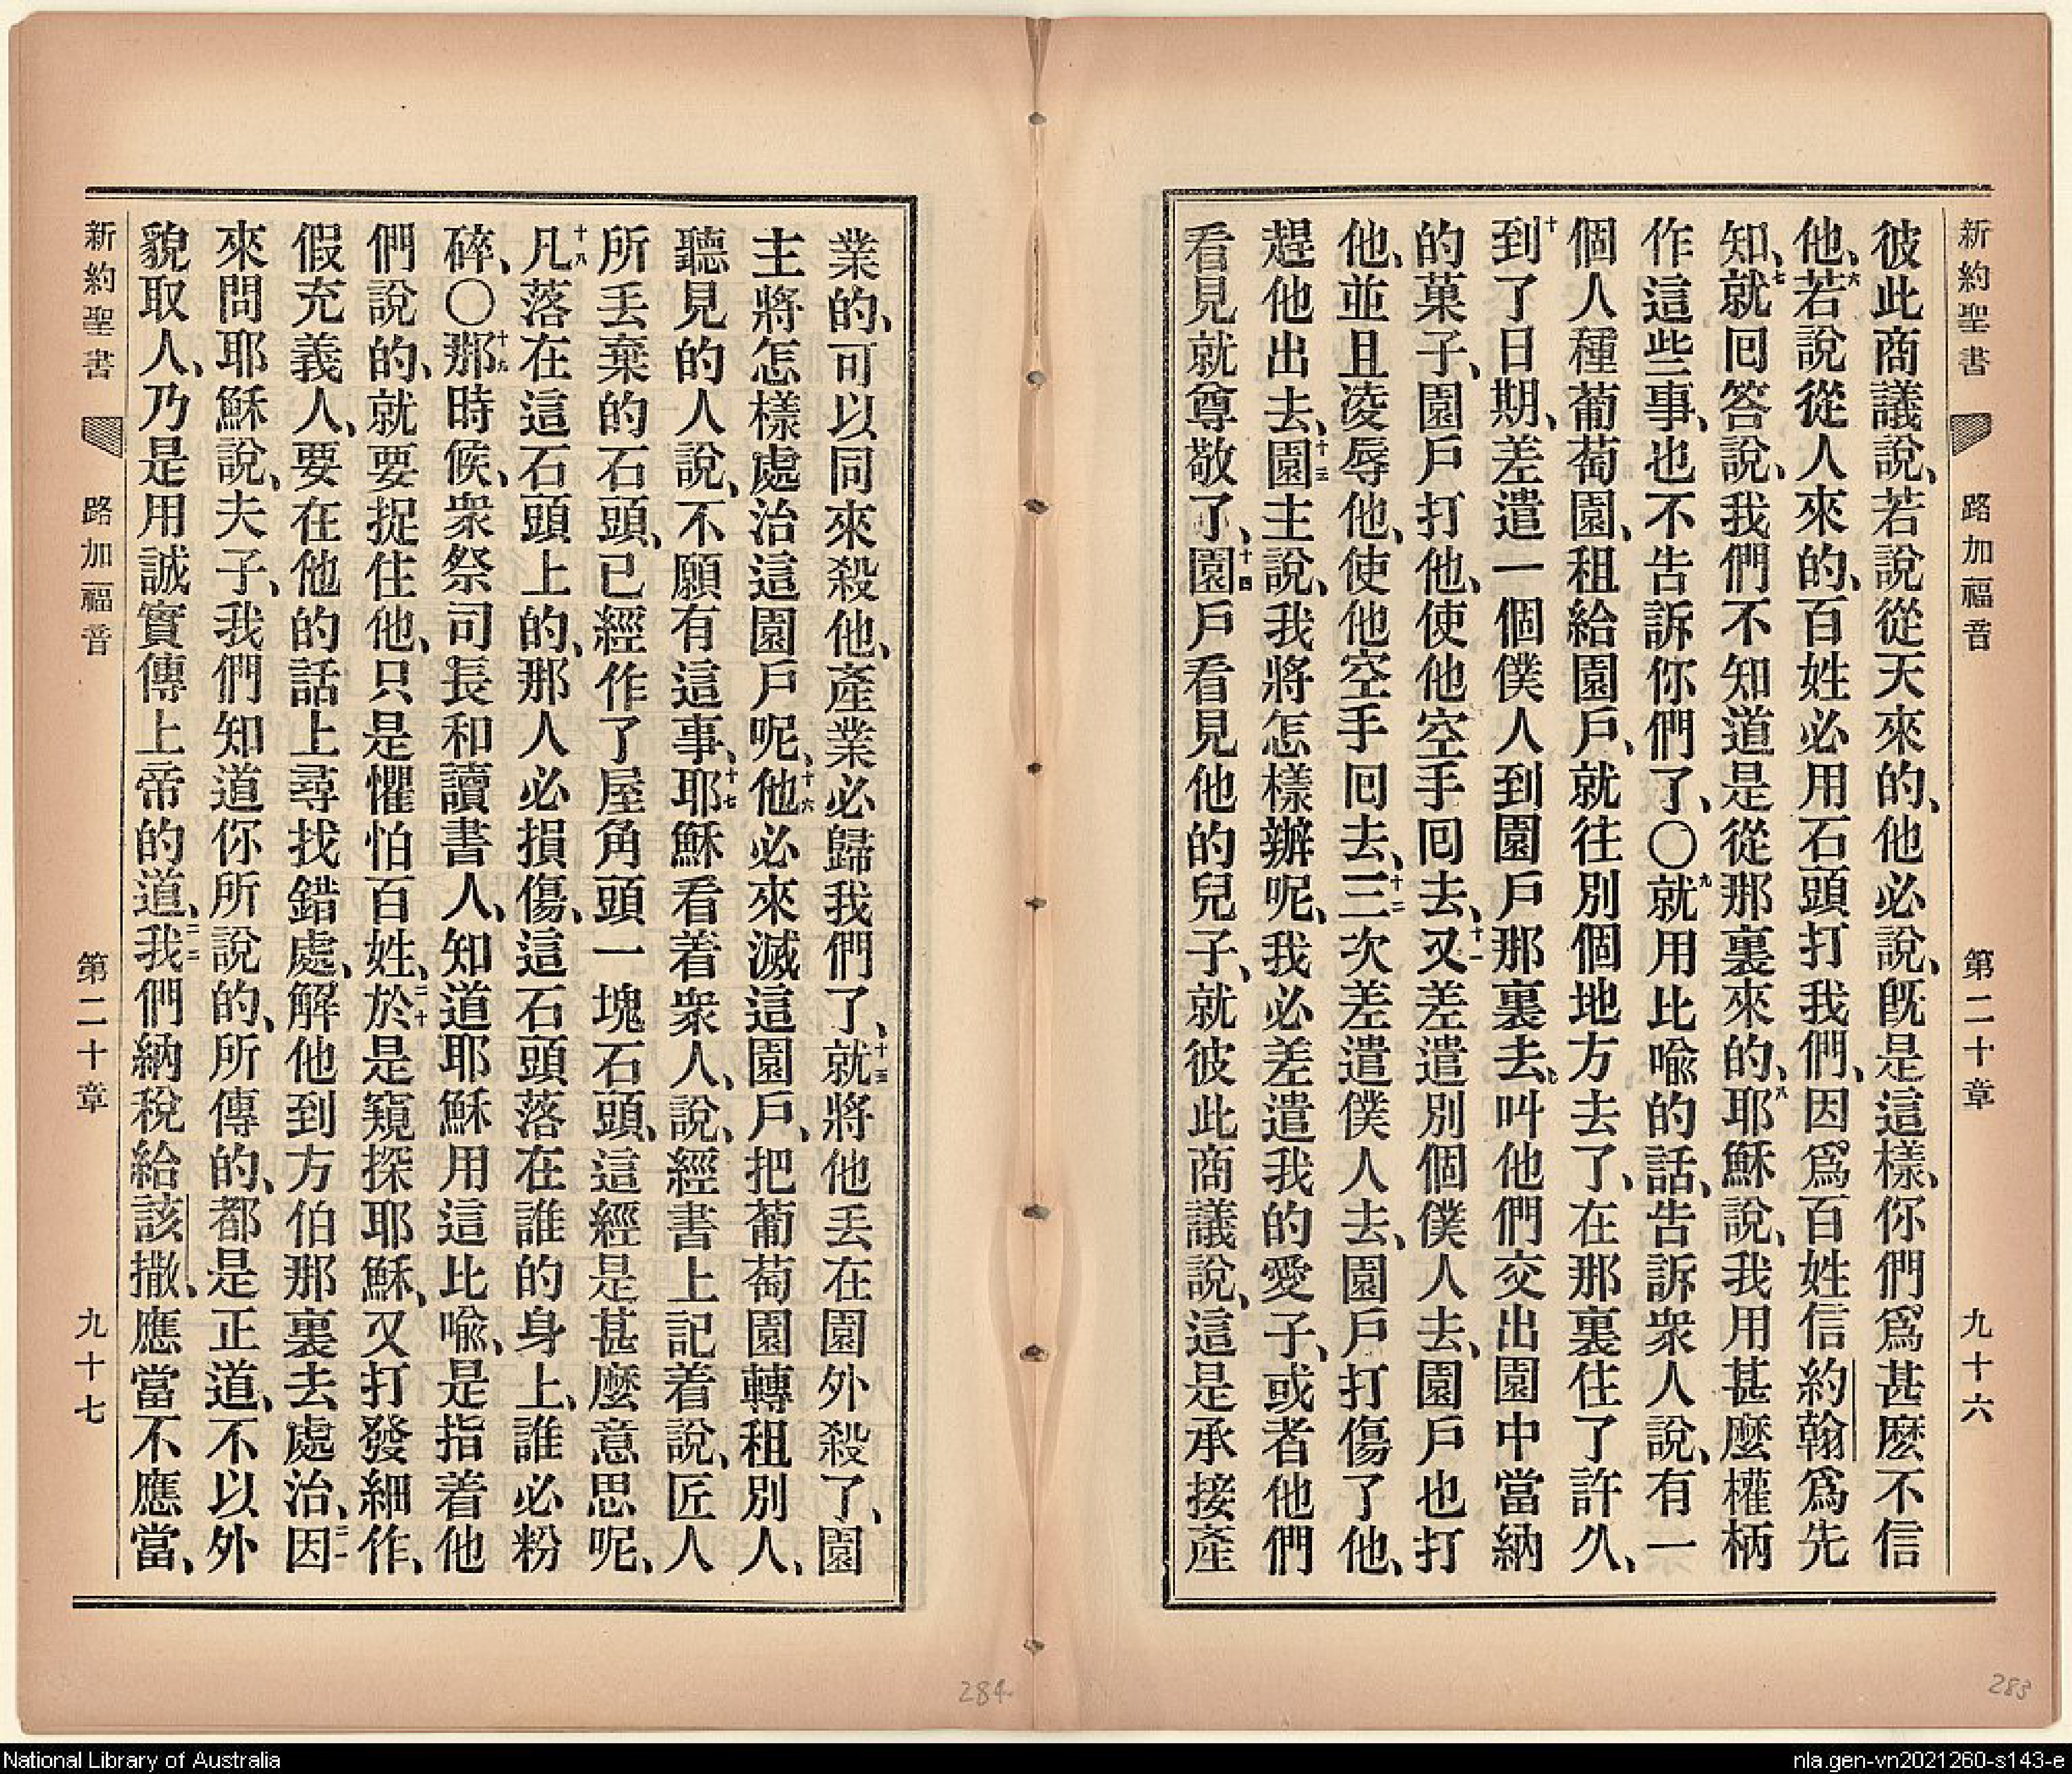 新約聖書 路加福音 第二十章 九十六
彼此商議說、若說從天來的、他必說、旣是這樣、你們爲甚麽不信
他、六若說從人來的、百姓必用石頭打我們、因爲百姓信約翰爲先
知、七就回答說、我們不知道是從那裏來的、八耶穌說、我用甚麽權柄
作這些事、也不告訴你們了、〇九就用比喩的話、告訴衆人說、有一
個人種葡萄園、租給園戶、就往別個地方去了、在那裏住了許久、
十到了日期、差遣一個僕人到園戶那裏去、叫他們交出園中當納
的菓子、園戶打他、使他空手回去、十一又差遣別個僕人去、園戶也打
他、並且凌辱他、使他空手回去、十二三次差遣僕人去、園戶打傷了他、
趕他出去、十三園主說、我將怎樣辦呢、我必差遣我的愛子、或者他們
看見就尊敬了、十四園戶看見他的兒子、就彼此商議說、這是承接產
業的、可以同來殺他、產業必歸我們了、十五就將他丟在園外殺了、園
主將怎樣處治這園戶呢、十六他必來滅這園戶、把葡萄園轉租別人、
聽見的人說、不願有這事、十七耶穌看着衆人、說、經書上記着說、匠人
所丟棄的石頭、已經作了屋角頭一塊石頭、這經是甚麽意思呢、
十八凡落在這石頭上的、那人必損傷、這石頭落在誰的身上、誰必粉
碎、〇十九那時候、衆祭司長和讀書人、知道耶穌用這比喩、是指着他
們說的、就要捉住他、只是懼怕百姓、二十於是窺探耶穌、又打發細作、
假充義人、要在他的話上尋找錯處、解他到方伯那裏去處治、二一因
來問耶穌說、夫子、我們知道你所說的、所傳的、都是正道、不以外
貌取人、乃是用誠實傳上帝的道、二二我們納稅給該撒、應當不應當、
新約聖書 路加福音 第二十章 九十七
284
283
National Library of Australia
nla.gen-vn2021260-s143-e